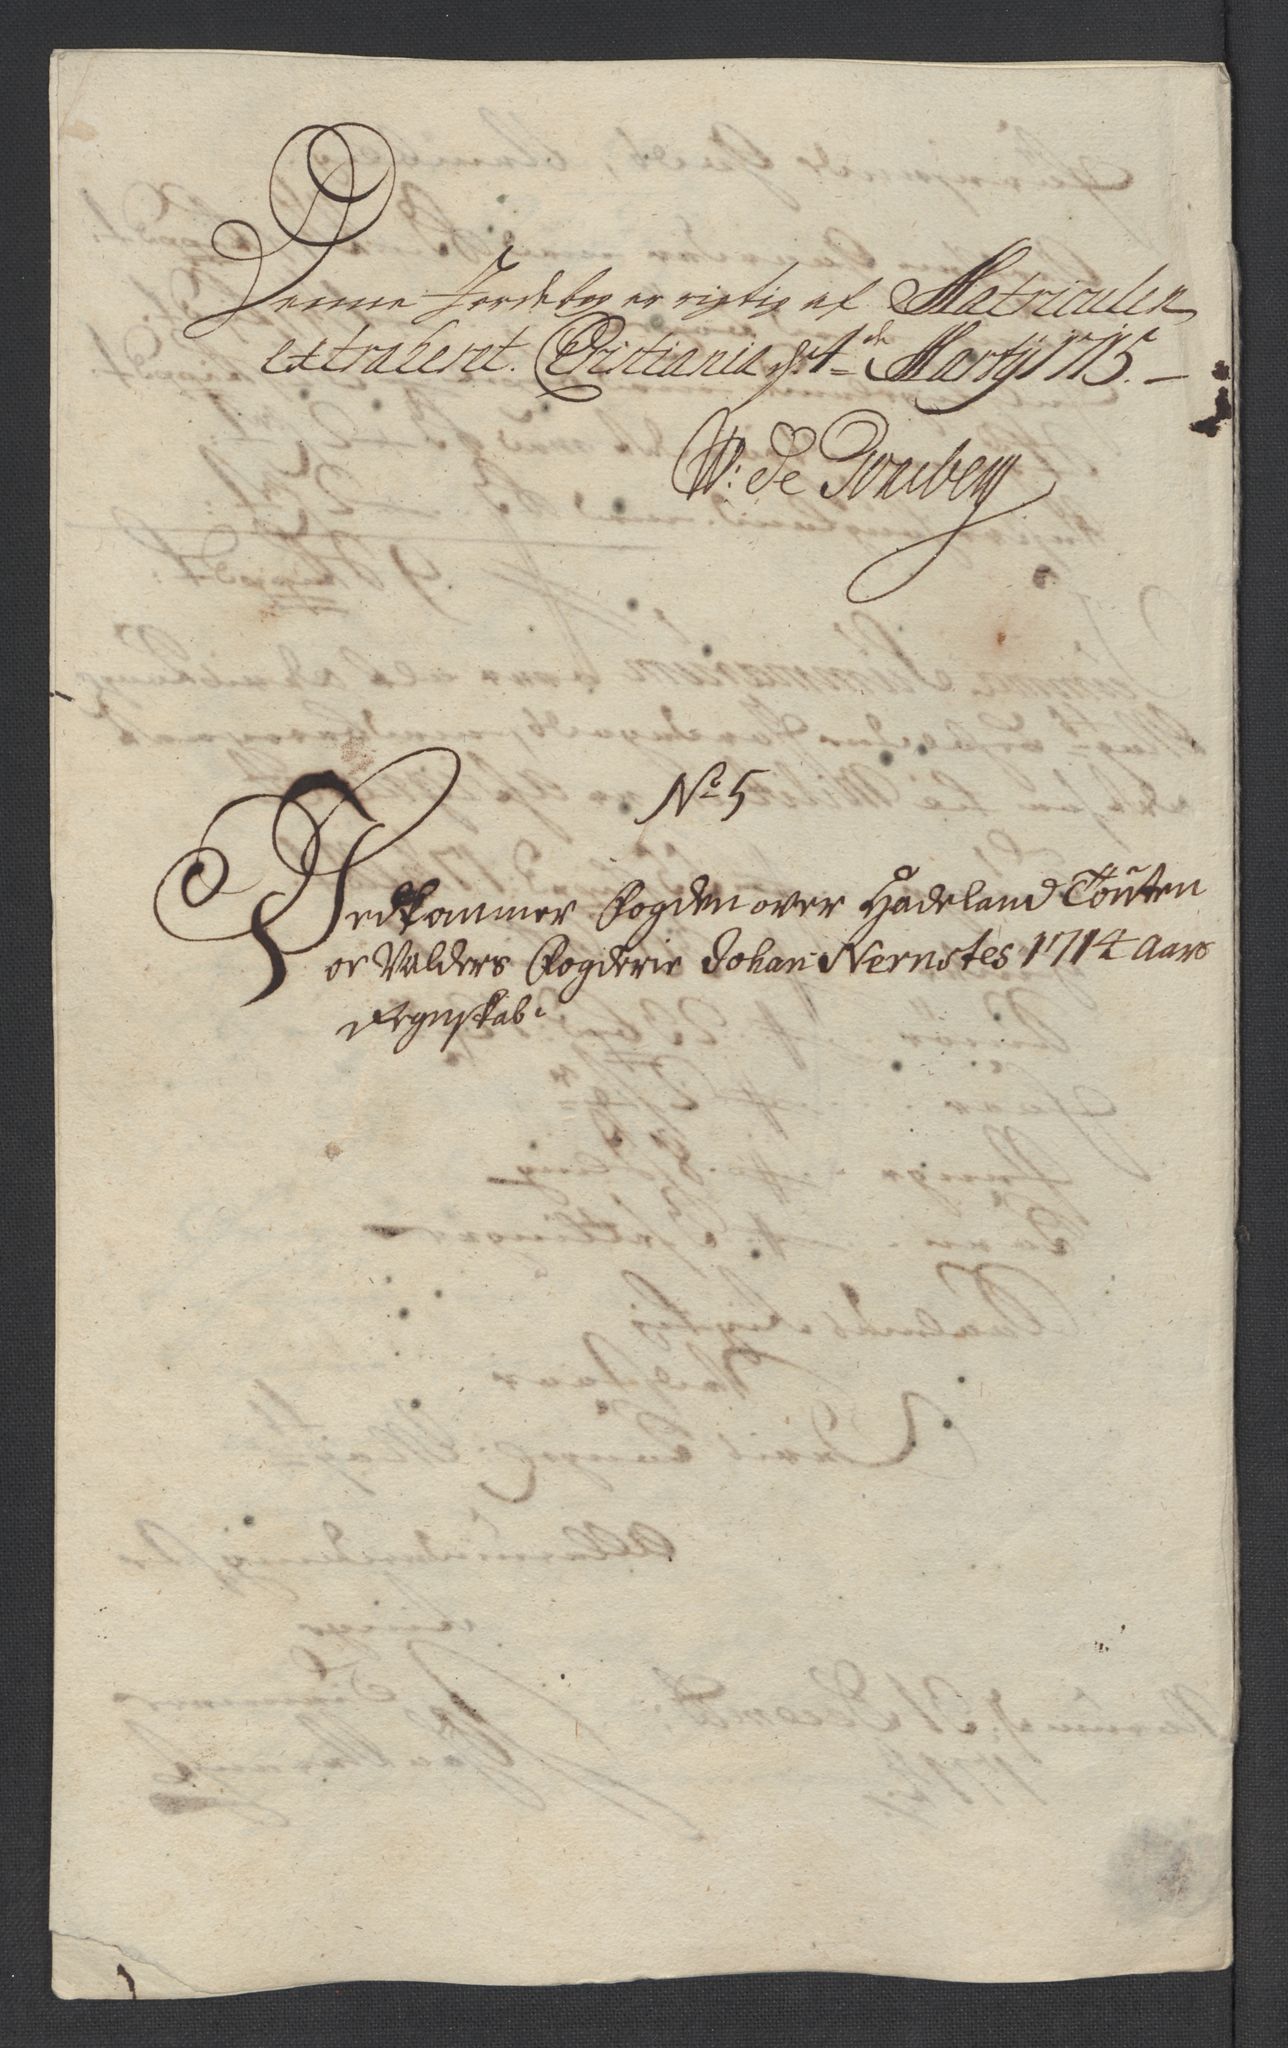 Denne Jordebog er rigtig af Matriculen
extraheret. Christiania d: 4de Martij 1715. –
W: de Tonsberg
No 5
Vedkommer Fogden over Hadeland Tóuten
oc Valders Fogderie Johan Nernstes 1714 Aars
Regnskab.